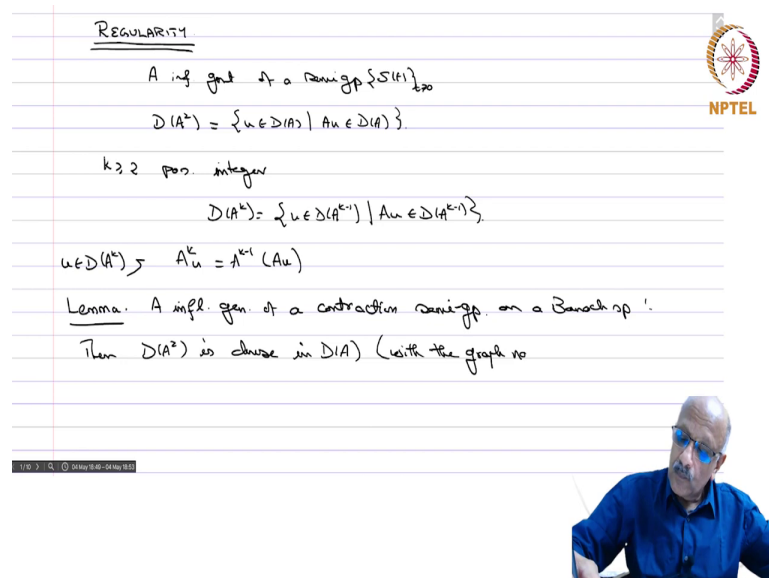 REGULARITY.
A inf gent of a semi gp {S(t)}_{t≥0}
D(A²) = {u ∈ D(A) | Au ∈ D(A)}.
k ≥ 2 pos. integer
D(A^k) = {u ∈ D(A^{k-1}) | Au ∈ D(A^{k-1})}.
u ∈ D(A^k), A^k u = A^{k-1} (Au)
Lemma. A infl. gen. of a contraction semi-gp. on a Banach sp
Then D(A²) is dense in D(A) (with the graph no
NPTEL
1/10 04 May 18:49 - 04 May 18:53